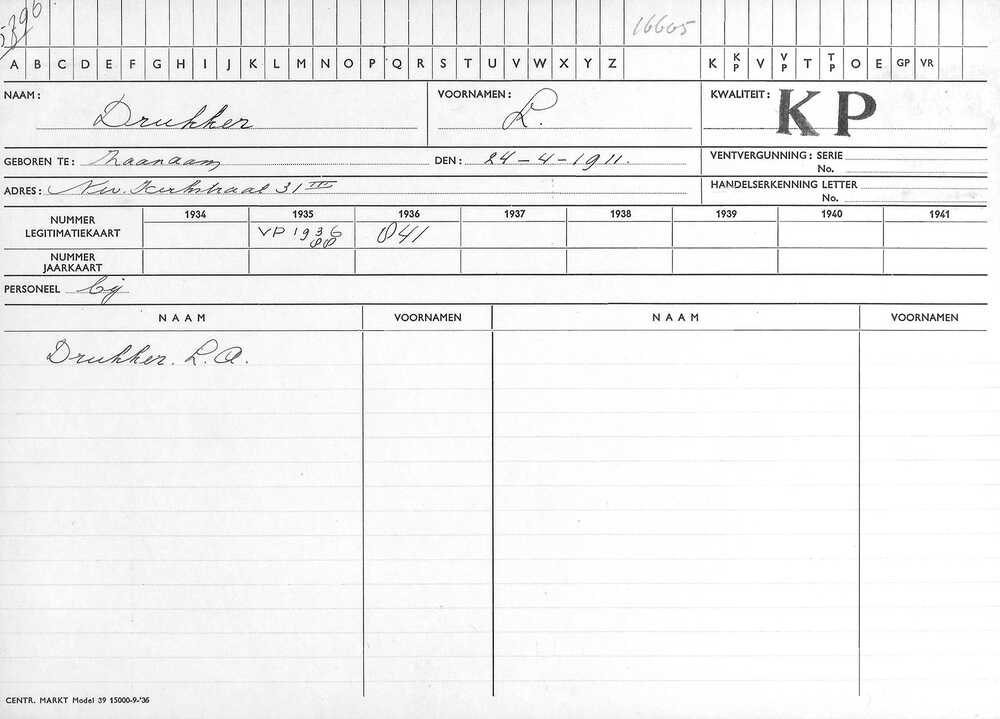 5396
16605
A B C D E F G H I J K L M N O P Q R S T U V W X Y Z K KP V VP T TP O E GP VR
NAAM: Drukker VOORNAMEN: L. KWALITEIT: KP
GEBOREN TE: DEN: 24-4-1911. VENTVERGUNNING: SERIE
No.
ADRES: Nw. Kerkstraat 31 III HANDELSERKENNING LETTER
No.
1934 1935 1936 1937 1938 1939 1940 1941
NUMMER LEGITIMATIEKAART VP 1936 841
NUMMER JAARKAART
PERSONEEL bij
NAAM VOORNAMEN NAAM VOORNAMEN
Drukker. L.A.
CENTR. MARKT Model 39 15000-9-'36